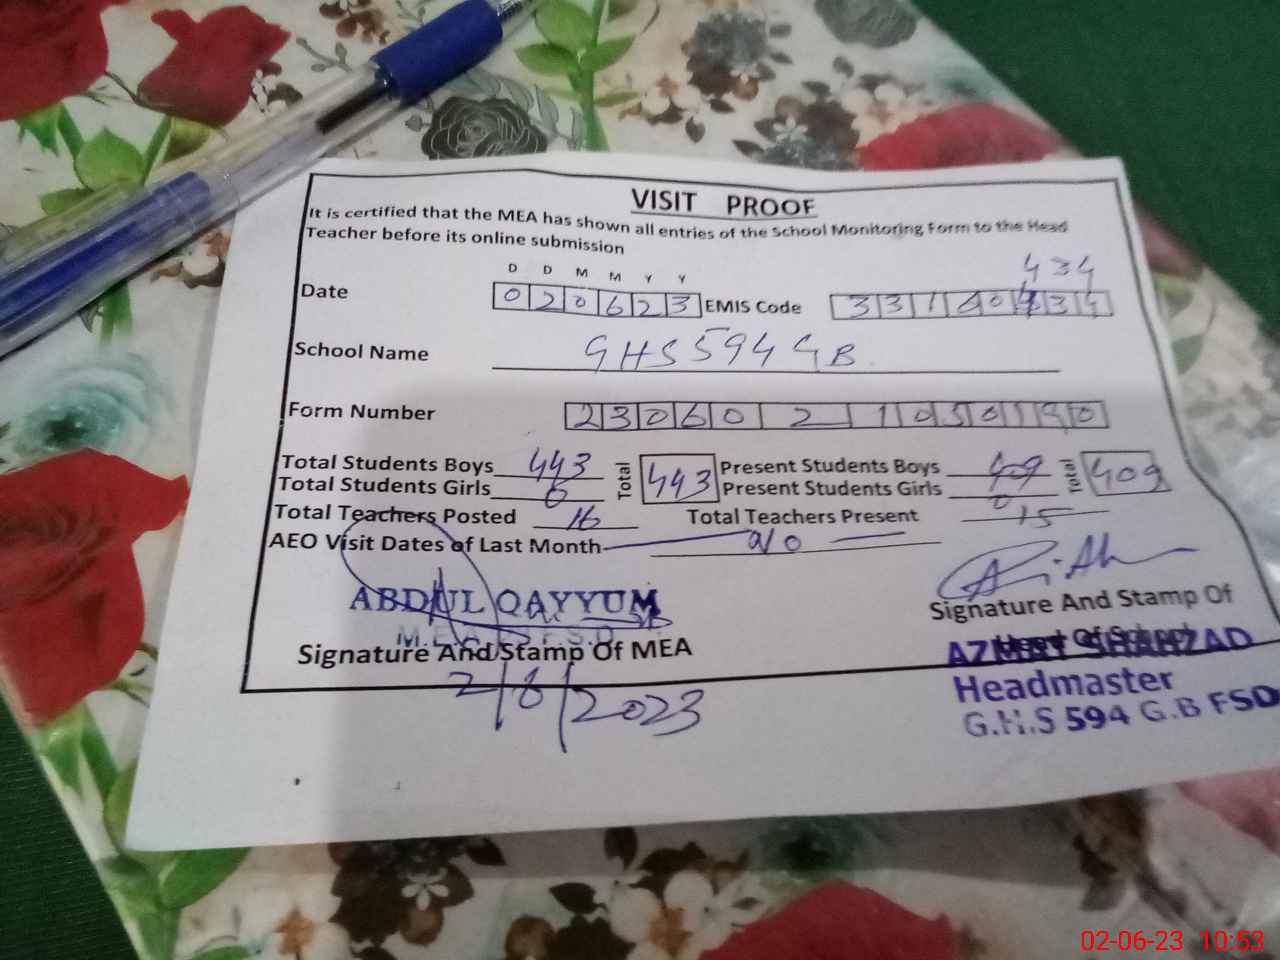 VISIT PROOF
It is certified that the MEA has shown all entries of the School Monitoring Form to the Head
Teacher before its online submission
D D M M Y Y
434
Date 020623 EMIS Code 33140434
School Name GHS 594 GB
Form Number 2306021050190
Total Students Boys 443 Total 443 Present Students Boys 409 Total 409
Total Students Girls 0 Present Students Girls 0
Total Teachers Posted 16 Total Teachers Present 15
AEO Visit Dates of Last Month
ABDUL QAYYUM
Signature And Stamp Of
M.E.A FSD
Signature And Stamp Of MEA
Head Of School
AZMAT SHAHZAD
2/8/2023
Headmaster
G.H.S 594 G.B FSD
02-06-23 10:53